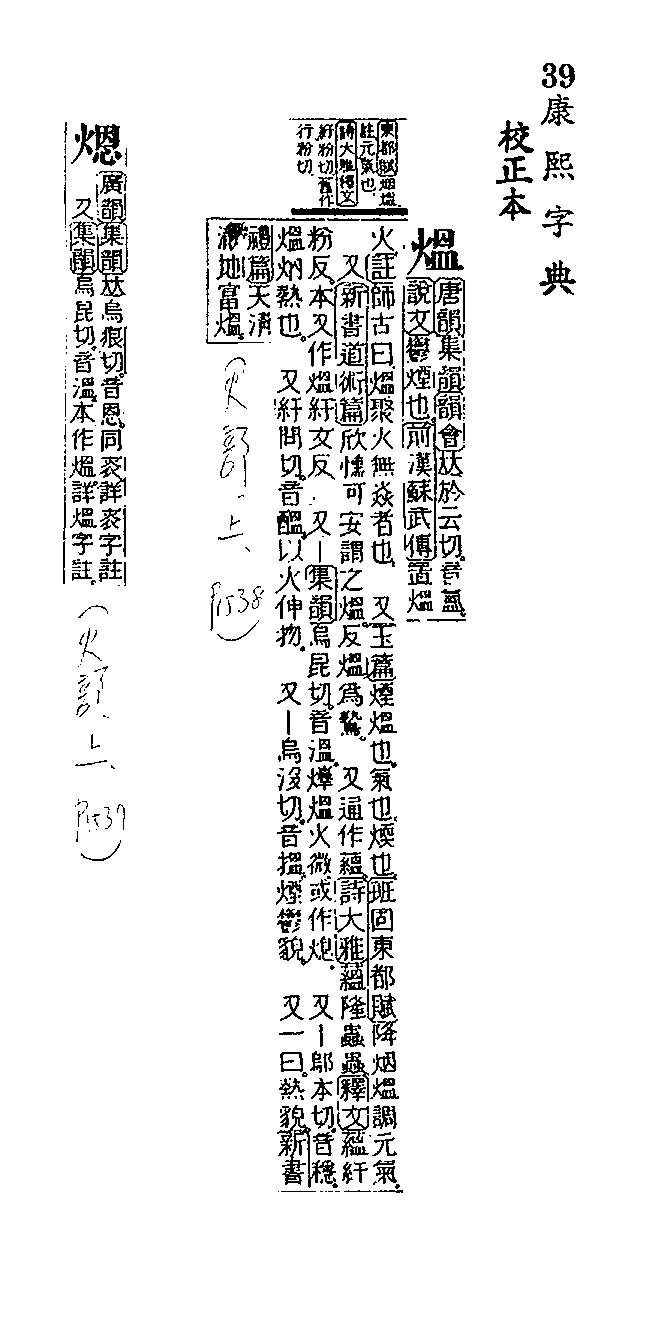 39 康熙字典
校正本
東都賦烟熅
註元氣也
詩大雅釋文
紆粉切舊作
行粉切
熅
唐韻集韻韻會𠀤於云切音氳
說文鬱煙也前漢蘇武傳置熅
火註師古曰熅聚火無焱者也 又玉篇煙熅也氣也煗也班固東都賦降烟熅調元氣
又新書道術篇欣懽可安謂之熅反熅爲鷙 又通作蘊詩大雅蘊隆蟲蟲釋文蘊紆
粉反本又作熅紆文反 又丨集韻烏昆切音溫㷸熅火微或作炮 又丨鄔本切音穩
熅炳熱也 又紆問切音醞以火伸物 又丨烏沒切音搵煙鬱貌 又一曰熱貌新書
禮篇天清
地富熅
(火部上 P1538)
煾
廣韻集韻𠀤烏痕切音恩同衮詳衮字註
又集韻烏昆切音溫本作熅詳熅字註
(火部上 P1539)